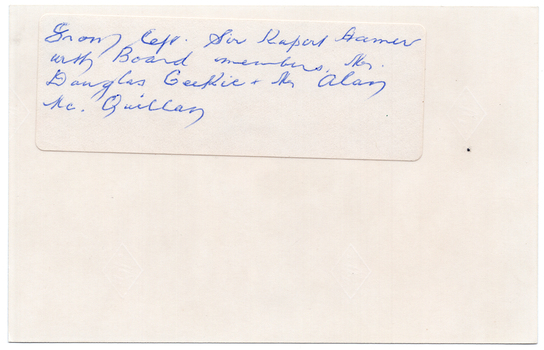 From left. Sir Rupert Hamer
with Board members, Mr.
Douglas Geekie + Mr Alan
Mc. Quillan